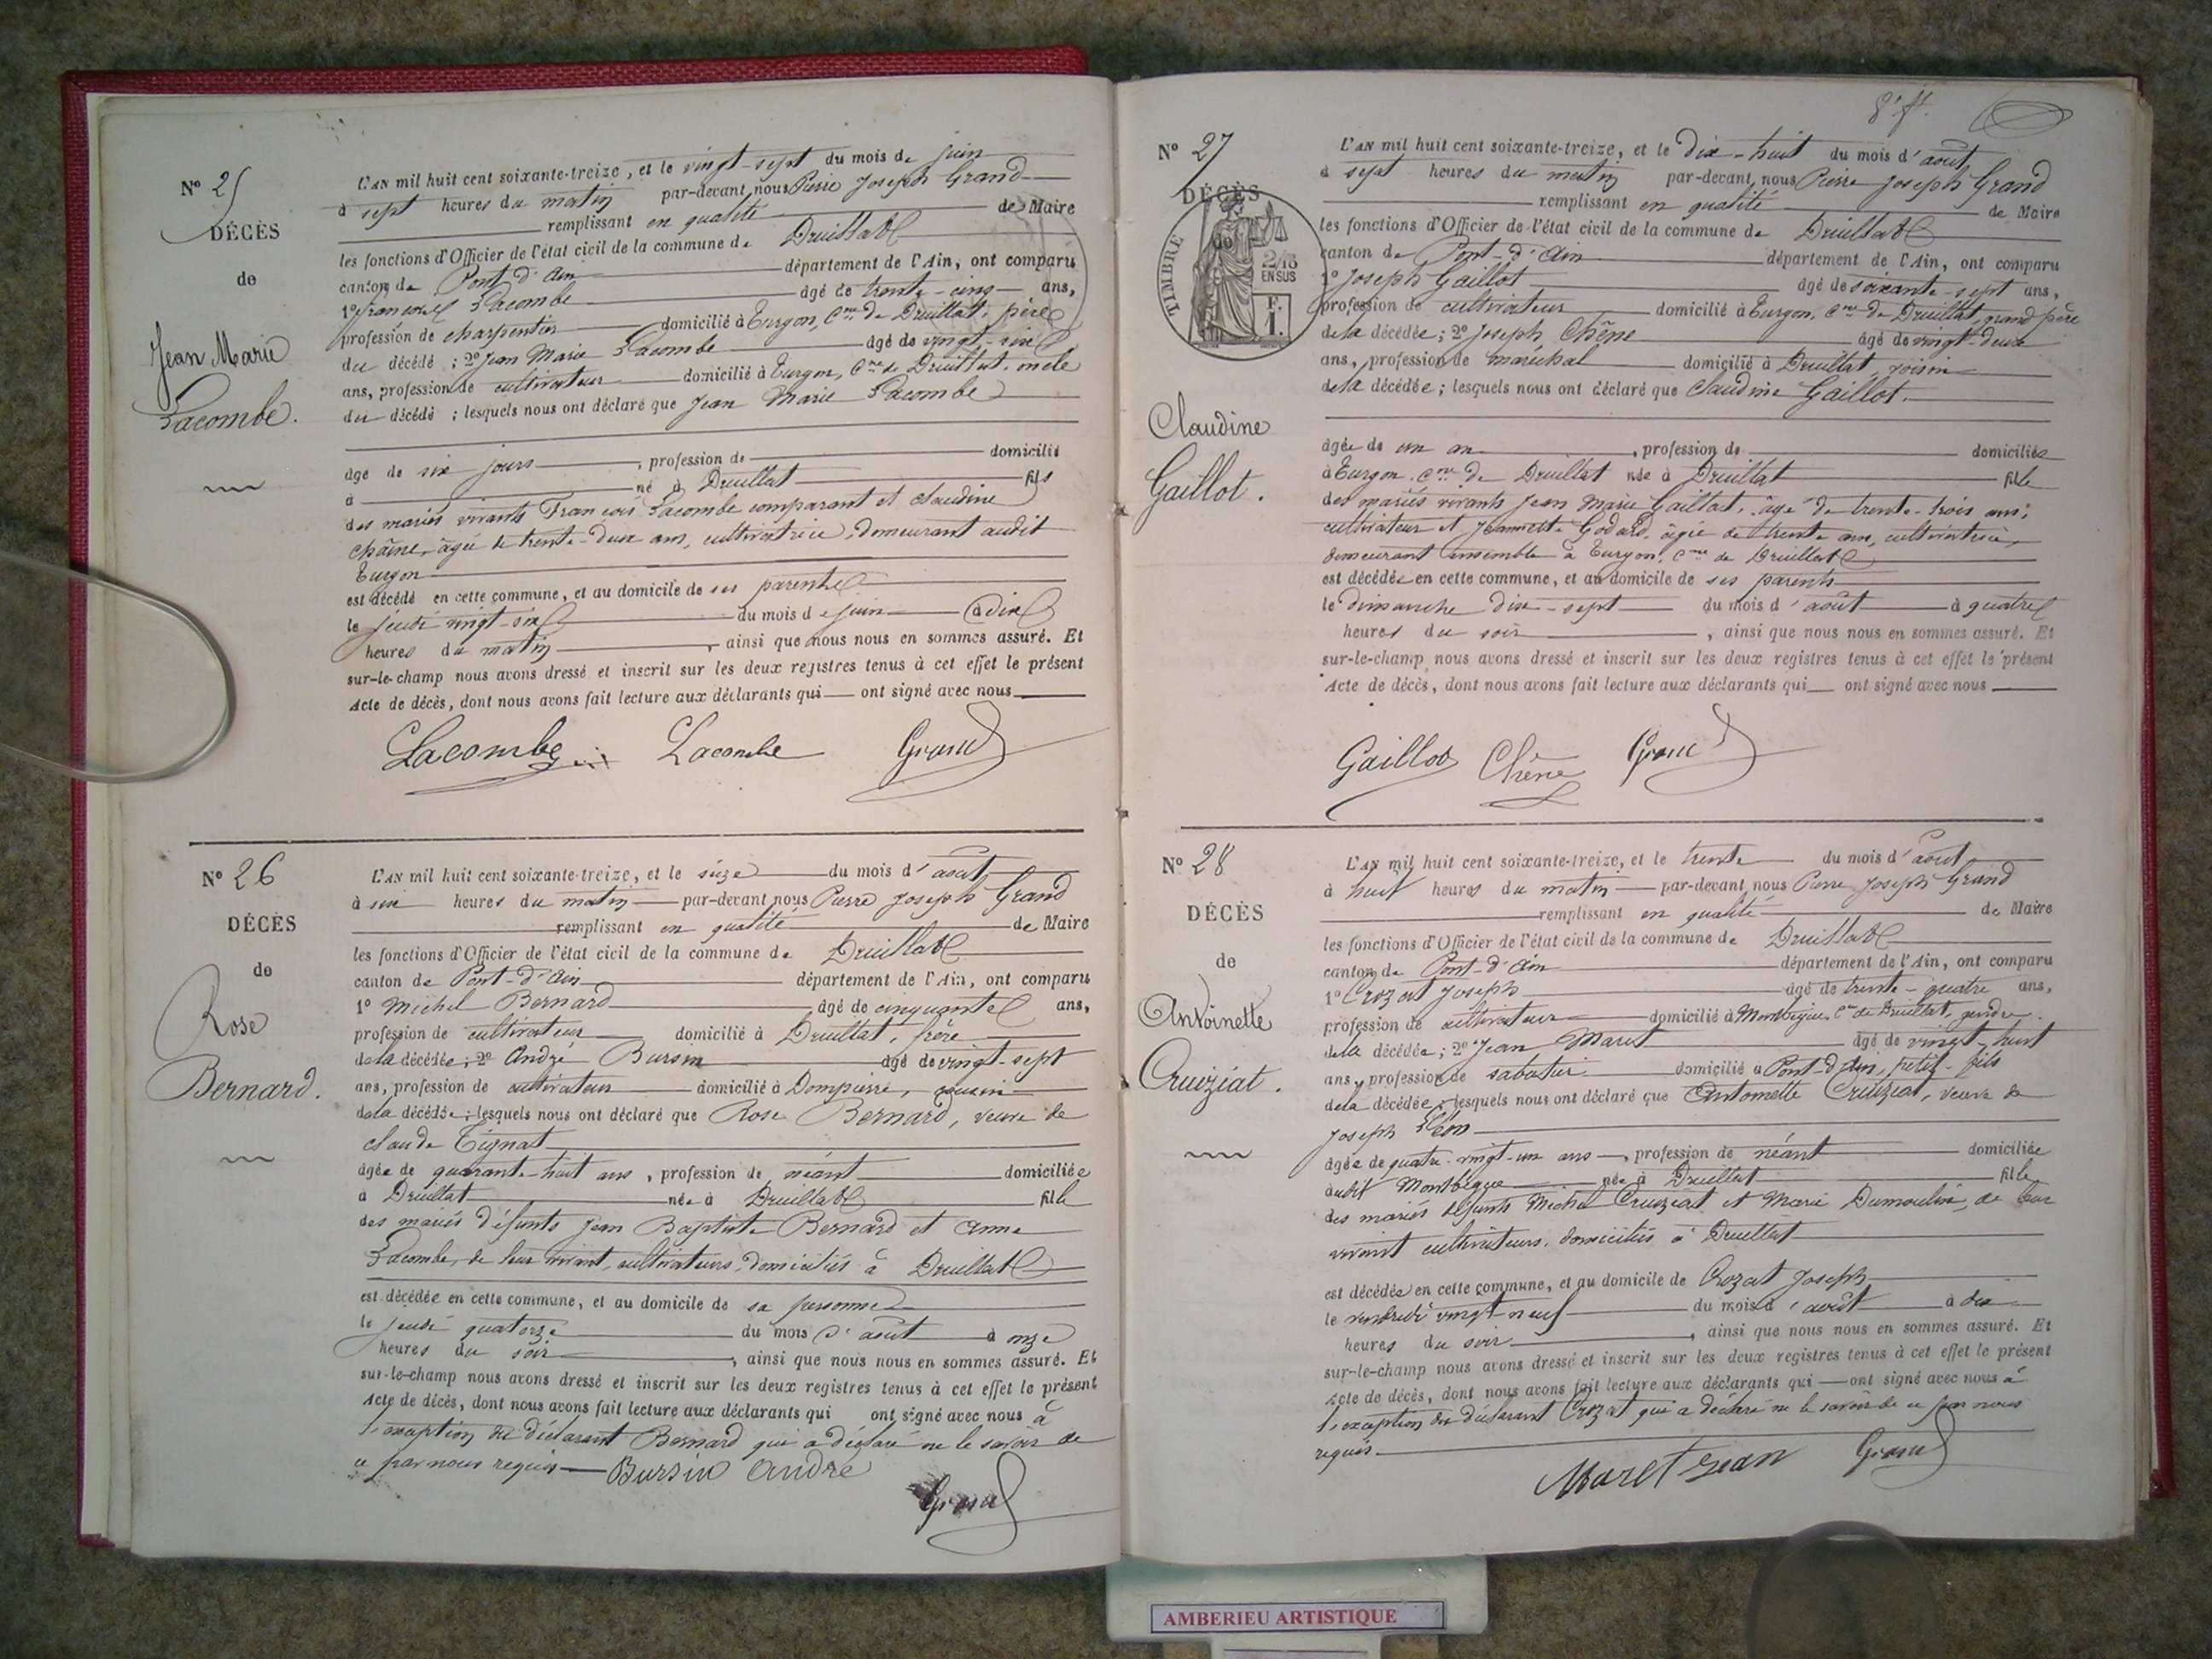 N° 25
DÉCÈS
de
Jean Marie
Lacombe.
L'AN mil huit cent soixante-treize, et le vingt-sept du mois de juin
à sept heures du matin par-devant nous Pierre Joseph Grand
remplissant en qualité de Maire
les fonctions d'Officier de l'état civil de la commune de Druillat
canton de Pont-d'Ain département de l'Ain, ont comparu
1° françois Lacombe âgé de trente-cinq ans,
profession de charpentier domicilié à Turgon, Cne de Druillat, père
du décédé ; 2° Jean Marie Lacombe âgé de vingt-six
ans, profession de cultivateur domicilié à Turgon, Cne de Druillat, oncle
du décédé ; lesquels nous ont déclaré que Jean Marie Lacombe
âgé de six jours , profession de domicilié
à né à Druillat fils
des mariés vivants François Lacombe comparant et claudine
Chêne, âgée de trente-deux ans, cultivatrice, demeurant audit
Turgon
est décédé en cette commune, et au domicile de ses parents
le jeudi vingt-six du mois de juin à dix
heures du matin , ainsi que nous nous en sommes assuré. Et
sur-le-champ nous avons dressé et inscrit sur les deux registres tenus à cet effet le présent
Acte de décès, dont nous avons fait lecture aux déclarants qui ont signé avec nous
Lacombe Lacombe Grand
N° 26
DÉCÈS
de
Rose
Bernard.
L'AN mil huit cent soixante-treize, et le seize du mois d'août
à six heures du matin par-devant nous Pierre Joseph Grand
remplissant en qualité de Maire
les fonctions d'Officier de l'état civil de la commune de Druillat
canton de Pont-d'Ain département de l'Ain, ont comparu
1° Michel Bernard âgé de cinquante ans,
profession de cultivateur domicilié à Druillat, frère
de la décédée ; 2° André Bursin âgé de vingt-sept
ans, profession de cultivateur domicilié à Dompierre, cousin
de la décédée ; lesquels nous ont déclaré que Rose Bernard, veuve de
claude Tignat
âgée de quarante-huit ans , profession de néant domiciliée
à Druillat née à Druillat fille
des mariés défunts Jean Baptiste Bernard et Anne
Lacombe, de leur vivant, cultivateurs, domiciliés à Druillat
est décédée en cette commune, et au domicile de sa personne
le jeudi quatorze du mois d'août à onze
heures du soir , ainsi que nous nous en sommes assuré. Et
sur-le-champ nous avons dressé et inscrit sur les deux registres tenus à cet effet le présent
Acte de décès, dont nous avons fait lecture aux déclarants qui ont signé avec nous à
l'exception du déclarant Bernard qui a déclaré ne le savoir de
ce par nous requis Bursin André
Grand
N° 27
DÉCÈS
de
TIMBRE
2/10
EN SUS
F.
1.
Claudine
Gaillot.
L'AN mil huit cent soixante-treize, et le dix-huit du mois d'août
à sept heures du matin par-devant nous Pierre Joseph Grand
remplissant en qualité de Maire
les fonctions d'Officier de l'état civil de la commune de Druillat
canton de Pont-d'Ain département de l'Ain, ont comparu
1° Joseph Gaillot âgé de soixante-sept ans,
profession de cultivateur domicilié à Turgon, Cne de Druillat, grand père
de la décédée ; 2° Joseph Chêne âgé de vingt-deux
ans, profession de maréchal domicilié à Druillat, voisin
de la décédée ; lesquels nous ont déclaré que Claudine Gaillot.
âgée de un an , profession de domiciliée
à Turgon, Cne de Druillat née à Druillat fille
des mariés vivants Jean Marie Gaillot, âgé de trente-trois ans,
cultivateur et Jeannette Godard, âgée de trente ans, cultivatrice,
demeurant ensemble à Turgon, Cne de Druillat
est décédée en cette commune, et au domicile de ses parents
le dimanche dix-sept du mois d'août à quatre
heures du soir , ainsi que nous nous en sommes assuré. Et
sur-le-champ nous avons dressé et inscrit sur les deux registres tenus à cet effet le présent
Acte de décès, dont nous avons fait lecture aux déclarants qui ont signé avec nous
Gaillot Chêne Grand
N° 28
DÉCÈS
de
Antoinette
Cruiziat.
L'AN mil huit cent soixante-treize, et le trente du mois d'août
à huit heures du matin par-devant nous Pierre Joseph Grand
remplissant en qualité de Maire
les fonctions d'Officier de l'état civil de la commune de Druillat
canton de Pont-d'Ain département de l'Ain, ont comparu
1° Crozat Joseph âgé de trente-quatre ans,
profession de cultivateur domicilié à Cne de Druillat, gendre
de la décédée ; 2° Jean Maret âgé de vingt-huit
ans, profession de sabotier domicilié à Pont-d'Ain, petit-fils
de la décédée ; lesquels nous ont déclaré que Antoinette Cruiziat, veuve de
Joseph
âgée de quatre-vingt-un ans , profession de néant domiciliée
audit née à Druillat fille
des mariés défunts Michel Cruiziat et Marie Dumoulin, de leur
vivant cultivateurs, domiciliés à Druillat
est décédée en cette commune, et au domicile de Crozat Joseph
le vendredi vingt-neuf du mois d'août à dix
heures du soir , ainsi que nous nous en sommes assuré. Et
sur-le-champ nous avons dressé et inscrit sur les deux registres tenus à cet effet le présent
Acte de décès, dont nous avons fait lecture aux déclarants qui ont signé avec nous à
l'exception du déclarant Crozat qui a déclaré ne le savoir de ce par nous
requis.
Maret Jean Grand
AMBERIEU ARTISTIQUE